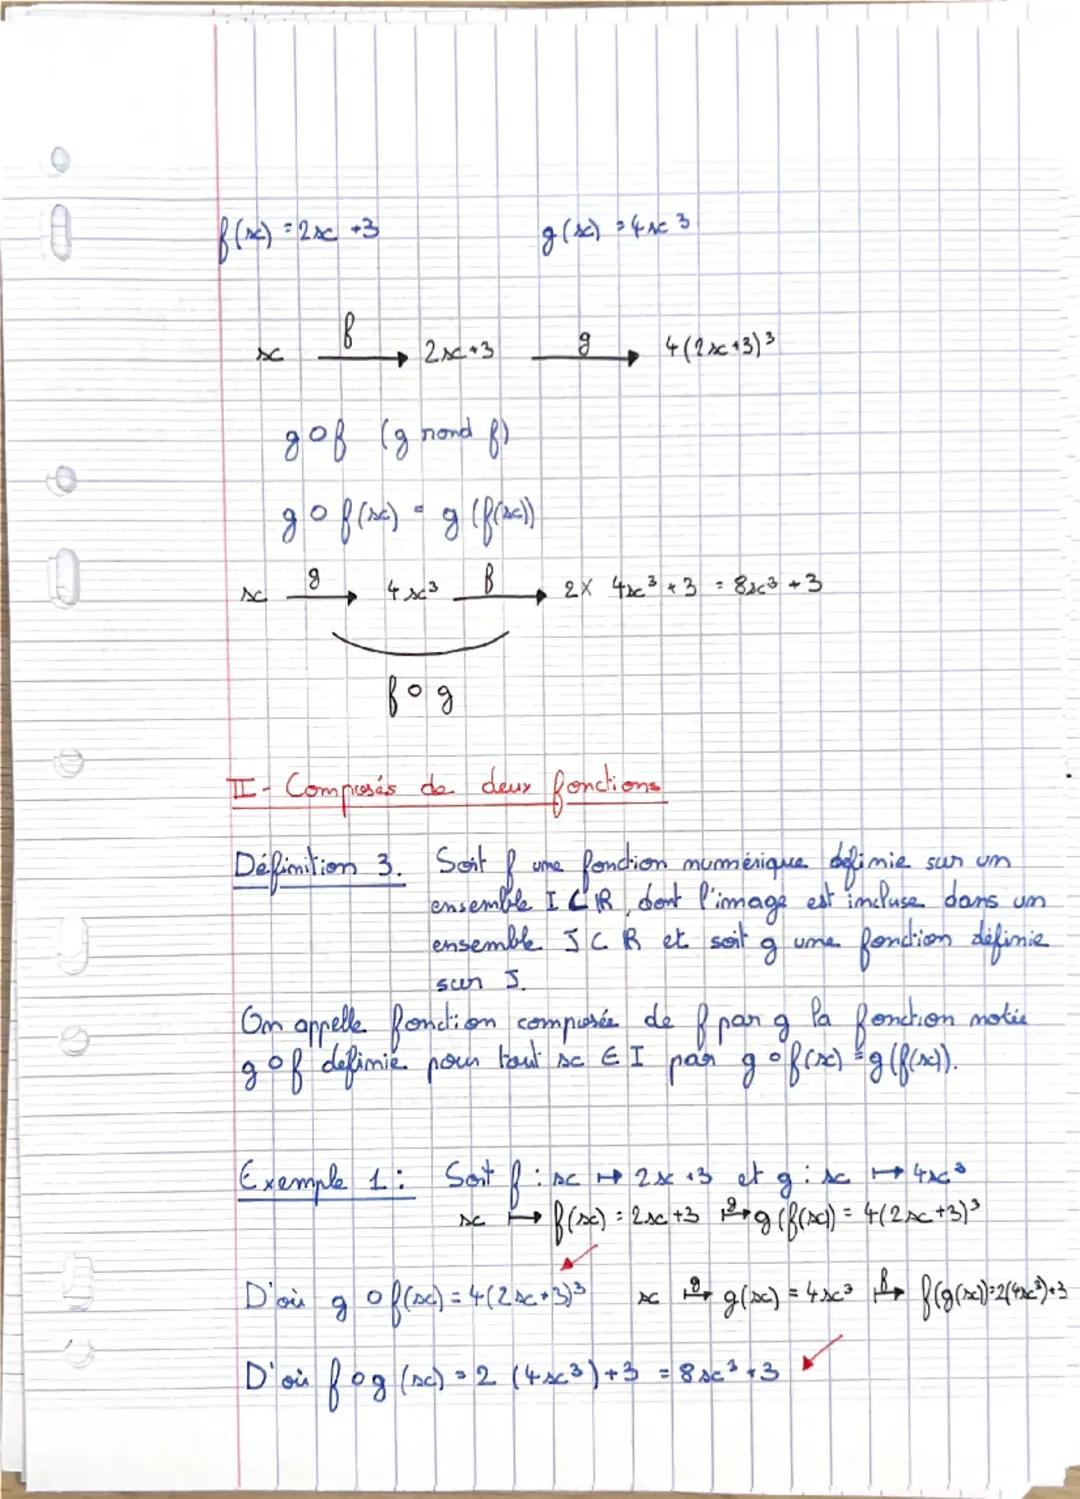 f(x) = 2x + 3 g(x) = 4x³
x —f→ 2x+3 —g→ 4(2x+3)³
g∘f (g rond f)
g∘f(x) = g(f(x))
x —g→ 4x³ —f→ 2× 4x³ + 3 = 8x³ + 3
f∘g
II - Composés de deux fonctions
Définition 3. Soit f une fonction numérique définie sur un
ensemble I ⊂ ℝ, dont l'image est incluse dans un
ensemble J ⊂ ℝ et soit g une fonction définie
sur J.
On appelle fonction composée de f par g la fonction notée
g∘f définie pour tout x ∈ I par g∘f(x) = g(f(x)).
Exemple 1 : Soit f : x ↦ 2x+3 et g : x ↦ 4x³
x ↦ f(x) = 2x+3 ↦g g(f(x)) = 4(2x+3)³
D'où g∘f(x) = 4(2x+3)³ x ↦g g(x) = 4x³ ↦f f(g(x))=2(4x³)+3
D'où f∘g(x) = 2(4x³)+3 = 8x³+3